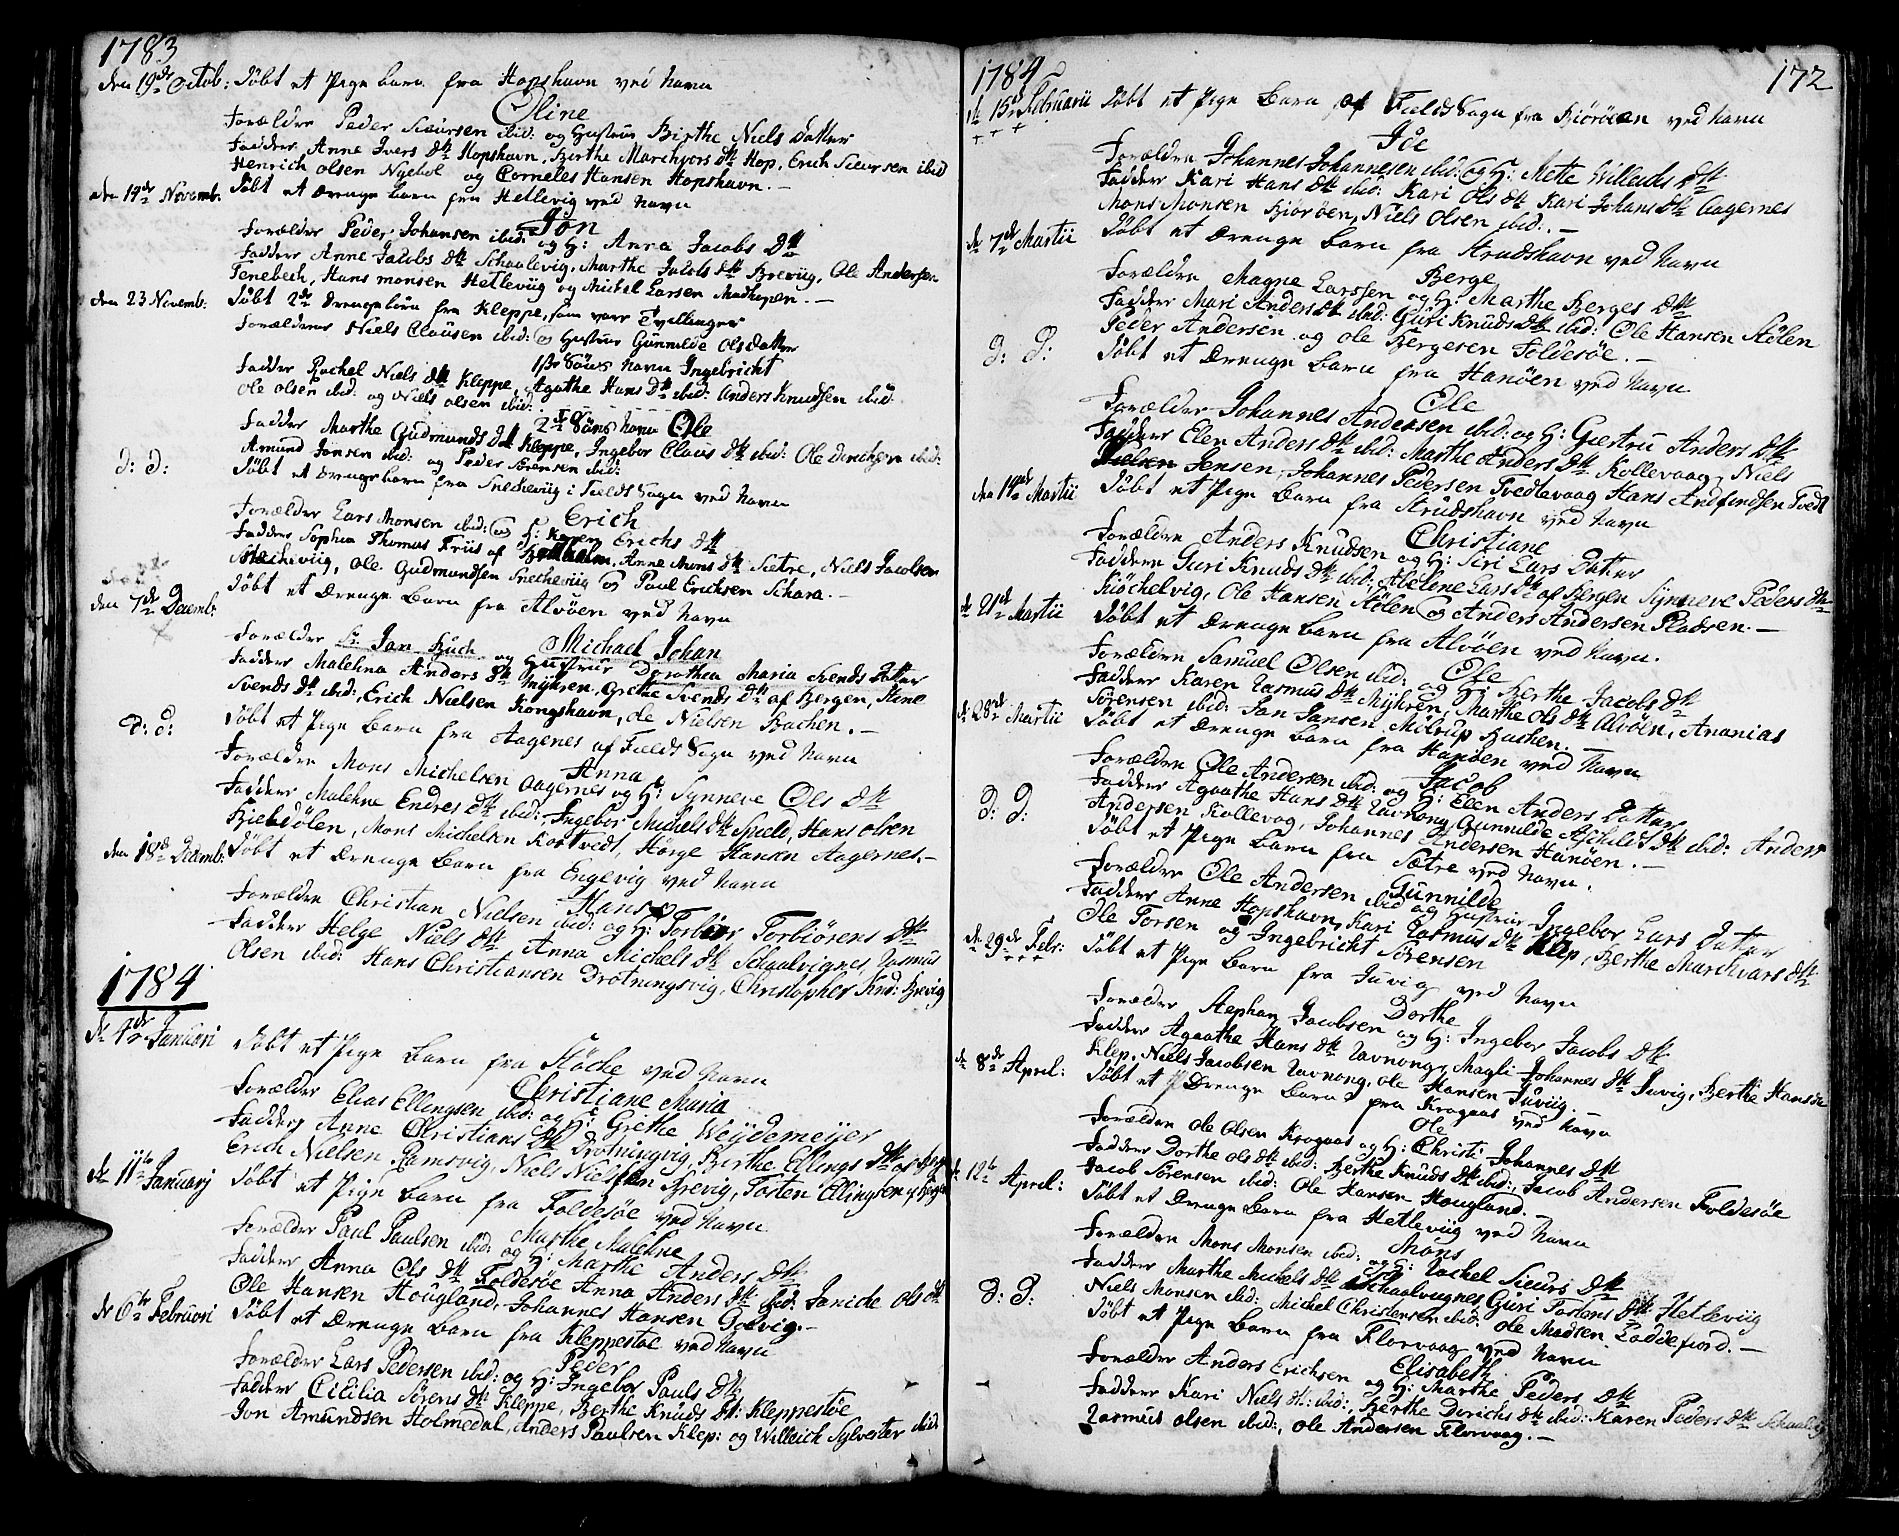 1783
den 19de Octob: Döbt et Pige barn fra Hopshavn ved Navn
Oline
Forælder Peder Siursen ibid: og Hustrue Birthe Niels Datter
Fadder Anne Ivers Dtr Hopshavn, Berthe Marchvors Dtr Hop, Erich Siursen ibid
Henrich Olsen Nyböe og Cornelis Hansen Hopshavn.-
den 14de Novemb: Döbt et Drenge barn fra Hetlevig ved Navn
Jon
Forælder Peder Johansen ibid: og H: Anna Jacobs Dtr
Fadder Anne Jacobs Dtr Schaalevig, Marthe Jacobs Dtr Breviig, Ole Andersen
Tenebech, Hans Monsen Hetleviig og Michel Larsen Madhopen.-
den 23 Novemb: Döbt 2de Drengebörn fra Kleppe, som vare Tvillinger
Forælderne Niels Clausen ibid: og Hustrue Gunnilde Ols Datter
1ste Söns Navn Ingebricht
Fadder Rachel Niels Dtr Kleppe, Agathe Hans Dtr ibid: Anders Knudsen ibid:
Ole Olsen ibid: og Niels Olsen ibid:
2de Söns Navn Ole
Fadder Marthe Gudmunds Dtr Kleppe, Ingebor Claus Dtr ibid: Ole Dirichsen ibid:
Amund Jonsen ibid: og Peder Sörensen ibid:
D: D: Döbt et Drenge barn fra Snecheviig i Fields Sogn ved Navn
Erich
Forælder Lars Monsen ibid: og H: Karen Erichs Dtr
Fadder Sophia Thomas Friis af Anne Mons Dtr Sætre, Niels Jacobsen
Snecheviig, Ole Gudmundsen Snecheviig og Paul Erichsen Schara.-
den 7de Decemb: Döbt et Drenge Barn fra Alvöen ved Navn
Michael Johan
Forælder Sr: Jan Buch og Hustrue Dorothea Maria Svends Datter
Fadder Malehna Anders Dtr Myhren, Grethe Svends Dtr af Bergen, Stine
Svends Dtr ibid: Erich Nielsen Kongshavn, Ole Nielsen Bachen.-
D: D: Döbt et Pige Barn fra Aagernes af Fields Sogn ved Navn
Anna
Forælder Mons Michelsen Aagernes og H: Synneve Ols Dtr
Fadder Malehne Endres Dtr ibid: Ingebor Michels Dtr Spield, Hans Olsen
Bielkdölen, Mons Michelsen Kostvedt, Hörge Hansen Aagernes.-
den 18de Decemb: Döbt et Drenge Barn fra Engevig ved Navn
Hans
Forælder Christian Nielsen ibid: og H: Torbiör Torbiörens Dtr
Fadder Helge Niels Dtr, Anna Michels Dtr Schaalvignes, Rasmus
Olsen ibid: Hans Christiansen Drotningsvig, Christopher Knud: Brevig
1784
den 4de Januari Döbt et Pige Barn fra Stöche ved Navn
Christiane Maria
Forælder Elias Ellingsen ibid: og H: Grethe Weydemeyer
Fadder Anne Christians Dtr Drotningvig, Berthe Ellings Dtr af Berg
Erich Nielsen Ramsvig, Niels Nielsen Brevig, Tosten Ellingsen af Bergen
den 11te Januarj Döbt et Pige barn fra Foldesöe ved Navn
Marthe Malehne
Forælder Paul Paulsen ibid: og H: Marthe Anders Dtr
Fadder Anna Ols Dtr Foldesöe Anna Anders Dtr ibid: Janiche Ols Dtr
Ole Hansen Hougland, Johannes Hansen Golvig.-
den 6te Februari Döbt et Drenge Barn fra Kleppestöe ved Navn
Peder
Forælder Lars Pedersen ibid: og H: Ingebor Pauls Dtr
Fadder Cicilia Sörens Dtr Kleppe, Berthe Knuds Dtr: Kleppestöe
Jon Amundsen Holmedal, Anders Paulsen Klep: og Willrich Sylvester ibid:
1784 172
den 15de Februarii Döbt et Pige Barn af Fields Sogn fra Biöröen ved Navn
Forælder Johannes Johannesen ibid: og H: Mette Willeuds Dtr
Fadder Kari Hans Dtr ibid: Kari Ols Dtr Kari Johans Dtr Aagernes
Mons Monsen Biöröen, Niels Olsen ibid:.-
den 7de Martii Döbt et Drenge barn fra Strudshavn ved Navn
Berge
Forælder Magne Larssen og H: Marthe Berges Dtr
Fadder Mari Anders Dtr ibid: Guri Knuds Dtr ibid: Ole Hansen Stölen
Peder Andersen og Ole Bergesen Foldesöe.-
D: D: Döbt et Drenge barn fra Hanöen ved Navn
Ole
Forælder Johannes Andersen ibid: og H: Giertru Anders Dtr
Fadder Elen Anders Dtr ibid: Marthe Anders Dtr Kollevaag, Niels
Jensen, Johannes Pedersen Tvedtevaag Hans Andfindsen Tvedt
den 14de Martii Döbt et Pige barn fra Strudshavn ved Navn
Christiane
Forælder Anders Knudsen og H: Siri Lars Datter
Fadder Guri Knuds Dtr ibid: Abelene Lars Dtr af Bergen Synneve Peders Dtr
Kiöchelvig, Ole Hansen Stölen og Anders Andersen Pladsen.-
den 21de Martii Döbt et Drenge barn fra Alvöen ved Navn.
Ole
Forælder Samuel Olsen ibid: og H: Berthe Jacobs Dtr
Fadder Karen Rasmus Dtr Myhren, Marthe Ols Dtr Alvöen, Ananias
Sörensen ibid: Jan Jansen Möhrup Bachen.-
den 28de Martii Döbt et Drenge barn fra Hanöen ved Navn
Jacob
Forælder Ole Andersen ibid: og H: Elen Anders Datter
Fadder Agaathe Hans Dtr Ravnong Gunnilde Aschilds Dtr ibid: Anders
Andersen Kollevog, Johannes Andersen Hanöen.-
D: D: Döbt et Pige barn fra Sætre ved Navn.
Gunnilde
Forælder Ole Andersen ibid og Hustrue Ingebor Lars Datter
Fadder Anne Hopshavn, Kari Rasmus Dtr Klep, Berthe Marchvars Dtr
Ole Torsen og Ingebricht Sörensen
den 29de Febr: Döbt et Pige barn fra Juvig ved Navn
Dorthe
Forælder Stephan Jacobsen og H: Ingebor Jacobs Dtr
Fadder Agaathe Hans Dtr Ravnong, Magli Johannes Dtr Juvig, Berthe Hans Dtr
Klep, Niels Jacobsen Ravnong, Ole Hansen Juviig.-
den 8de April: Döbt et Drenge Barn fra Krogaas ved Navn
Ole
Forælder Ole Olsen Krogaas og H: Christi Johannes Dtr
Fadder Dorthe Ols Dtr ibid: Berthe Knuds Dtr ibid: Jacob Andersen Foldesöe
Jacob Sörensen ibid: Ole Hansen Hougland.-
den 12te April: Döbt et Drenge barn fra Hetleviig ved Navn
Mons
Forælder Mons Monsen ibid: og H: Rachel Siurs Dtr
Fadder Marthe Michels Dtr Schaalvignes Guri Tostens Dtr Hetleviig
Niels Monsen ibid: Michel Christensen ibid: Ole Madsen Laddefiord.-
D: D: Döbt et Pige barn fra Florvaag ved Navn
Elisabeth
Forælder Anders Erichsen og H: Marthe Peders Dtr
Fadder Kari Niels Dtr: ibid:, Berthe Dirichs Dtr ibid: Karen Peders Dtr Schaalvig
Rasmus Olsen ibid:, Ole Andersen Florvaag.-